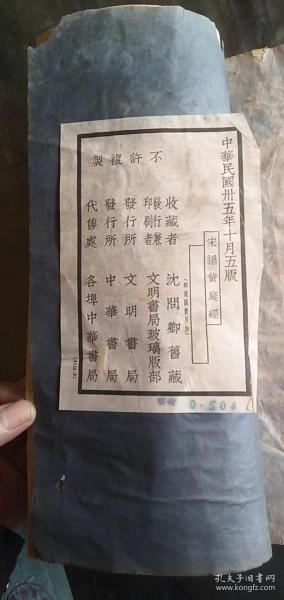 中華民國卅五年十月五版
宋搨黃庭經
不許複製
收藏者 沈問卿舊藏
發行兼印刷者 文明書局玻璃版部
發行所 文明書局
發行所 中華書局
代售處 各埠中華書局
0.50
孔夫子旧书网